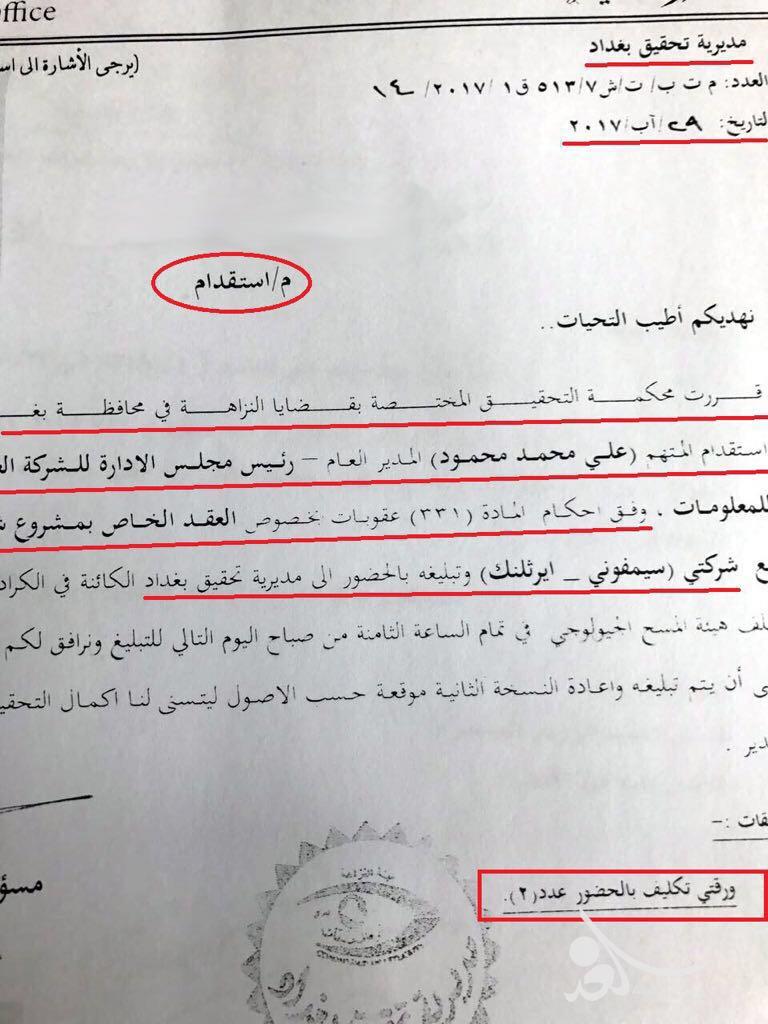 ffice
(يرجى الأشارة الى
مديرية تحقيق بغداد
العدد: م ت ب/ ت/ش٥١٣/٧ ق١ /٢٠١٧/ ١٤
التاريخ: ٢٩/آب/٢٠١٧
م/استقدام
نهديكم أطيب التحيات..
قررت محكمة التحقيق المختصة بقضايا النزاهة في محافظة بغ
استقدام المتهم (علي محمد محمود) المدير العام – رئيس مجلس الادارة للشركة
للمعلومات ، وفق احكام المادة (٣٣١) عقوبات بخصوص العقد الخاص بمشروع
ع شركتي (سيمفوني _ ايرثلنك) وتبليغه بالحضور الى مديرية تحقيق بغداد الكائنة في الكراد
لف هيئة المسح الجيولوجي في تمام الساعة الثامنة من صباح اليوم التالي للتبليغ ونرافق لكم
ى أن يتم تبليغه واعادة النسخة الثانية موقعة حسب الاصول ليتسنى لنا اكمال التحقي
دير .
قات :–
ورقتي تكليف بالحضور عدد(٢).
مسؤ
هيئة النزاهة